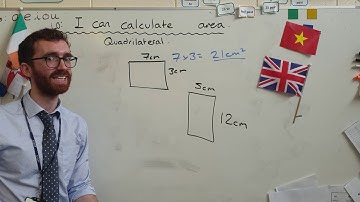 a.e.i.o.u
I can calculate area
Quadrilateral
7cm
7x3= 21cm²
3cm
5cm
12cm